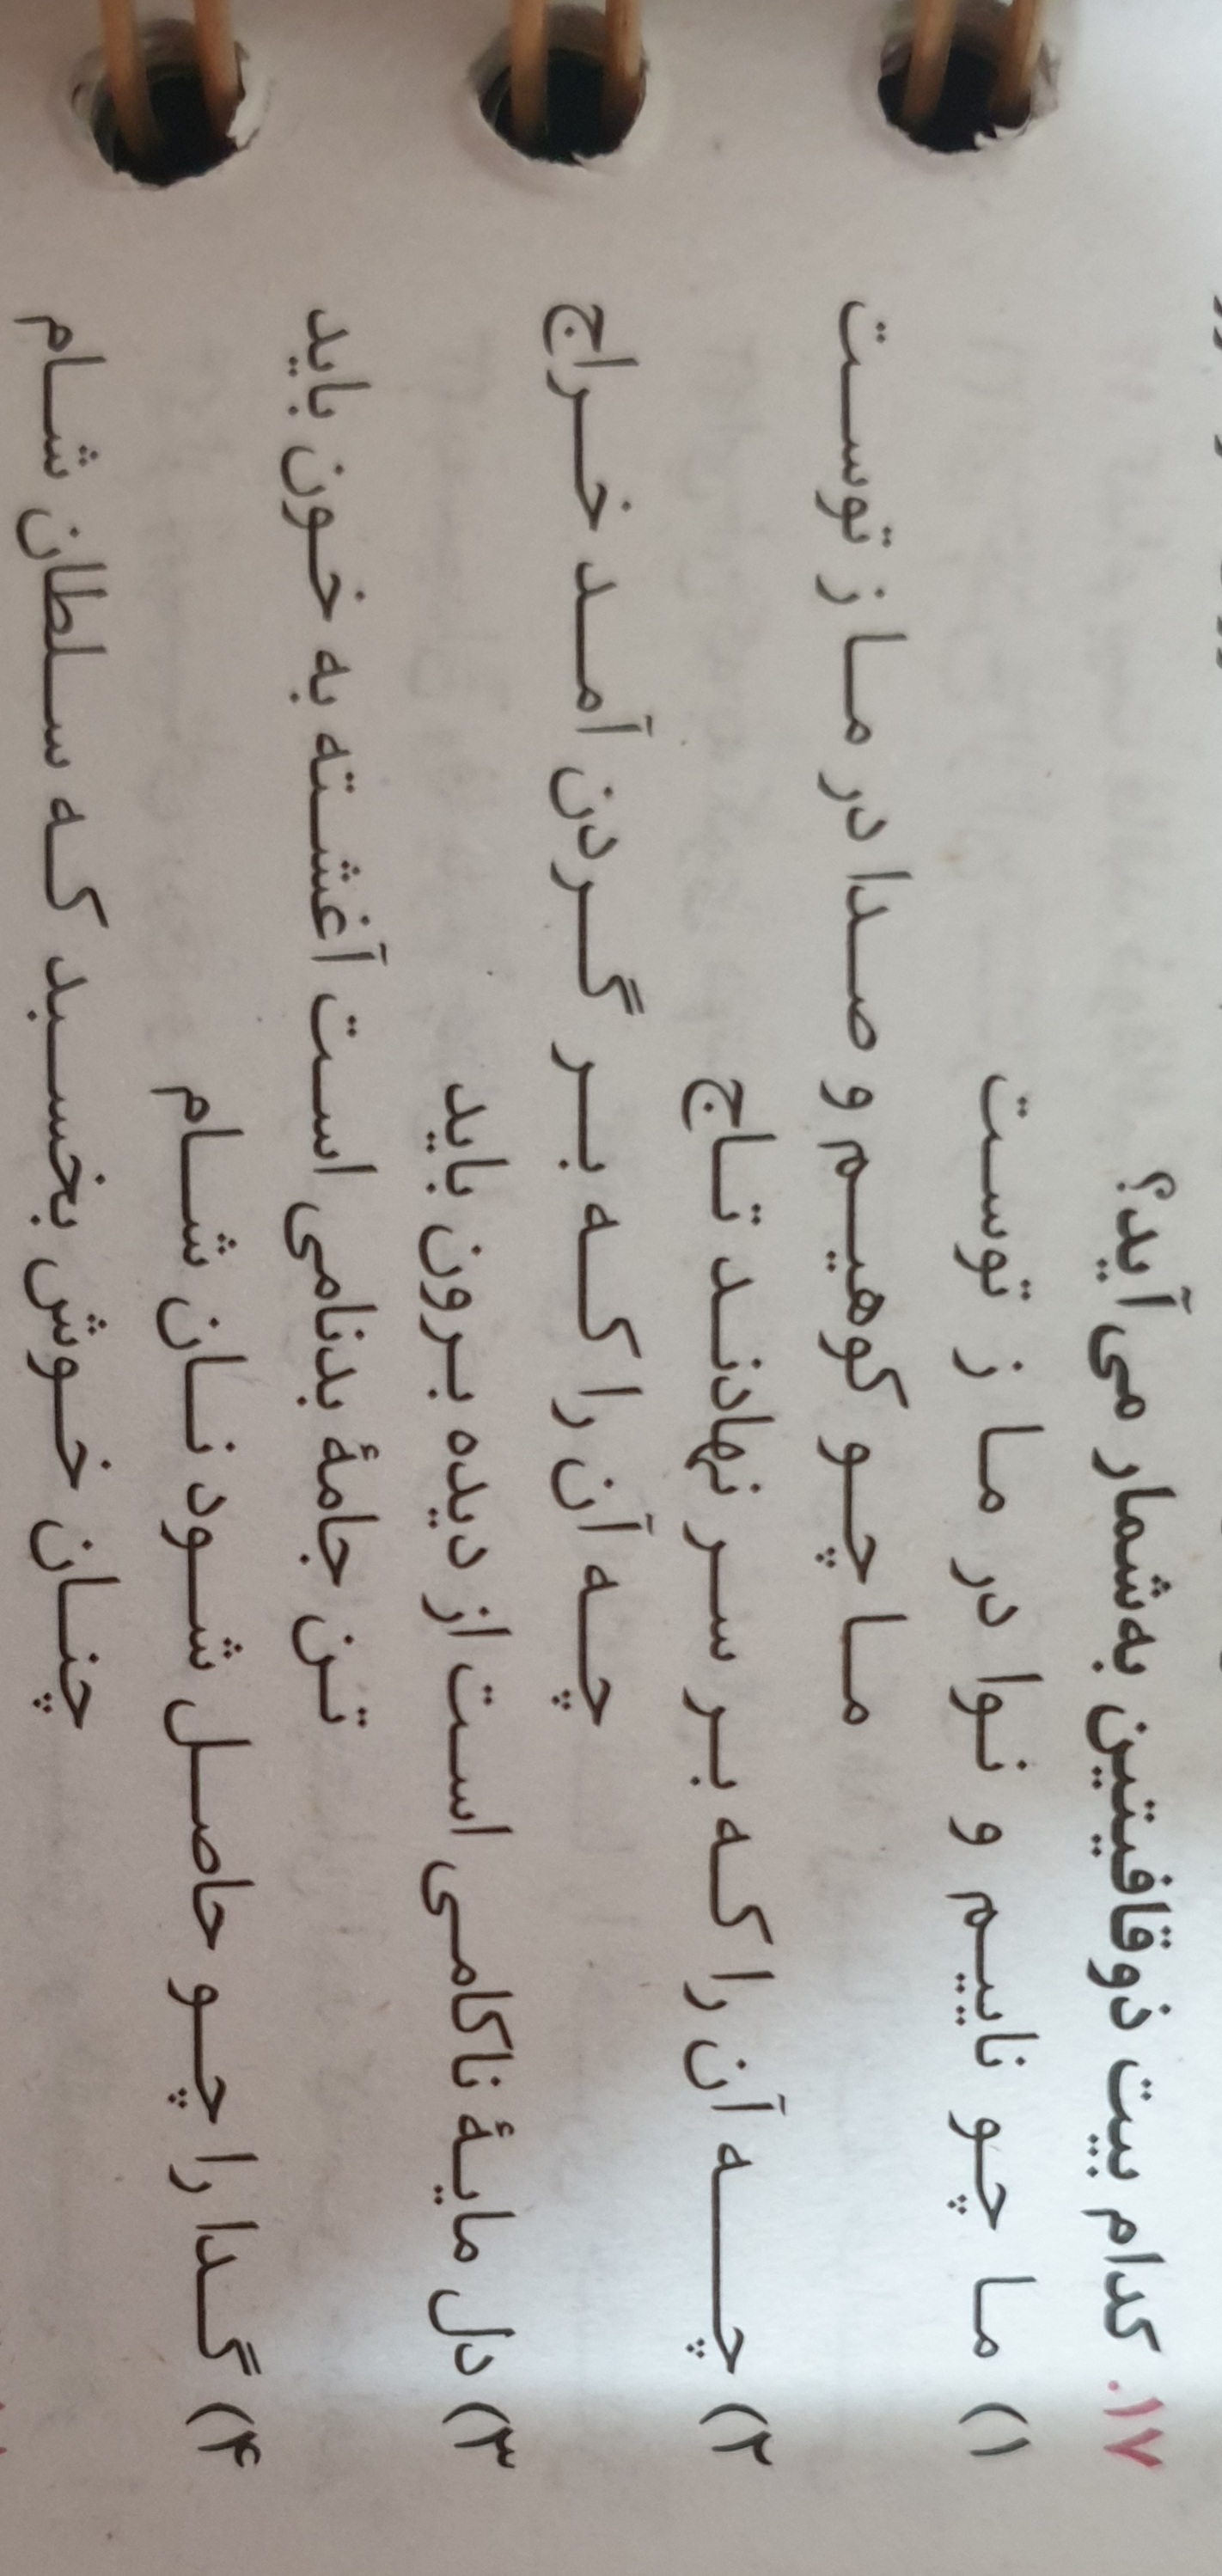 ۱۷. کدام بیت ذوقافیتین به‌شمار می‌آید؟
۱) ما چو ناییم و نوا در ما ز توست
ما چو کوهیم و صدا در ما ز توست
۲) چه آن را که بر سر نهادند تاج
چه آن را که بر گردن آمد خراج
۳) دل مایهٔ ناکامی است از دیده برون باید
تن جامهٔ بدنامی است آغشته به خون باید
۴) گدا را چو حاصل شود نان شام
چنان خوش بخسبد که سلطان شام